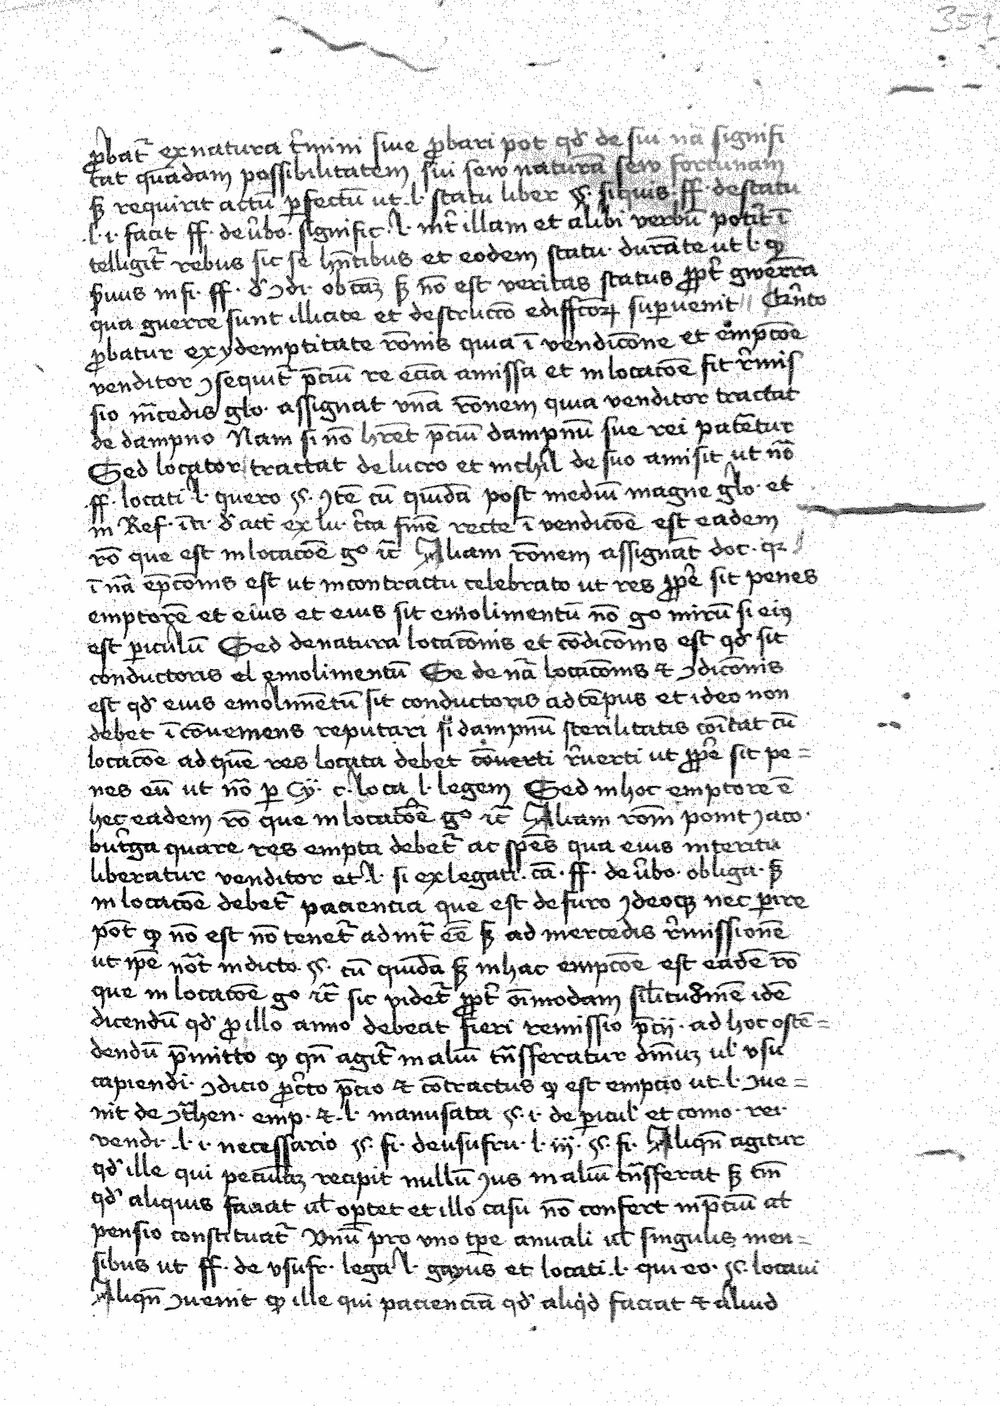 351
ꝓbat᷑ ex natura t᷑mini siue ꝓbari pot qđ de sui nā signifi
cat quādam possibilitatem sui sew naturā sew fortunam
sꝫ requirit actū ꝑfectū ut ·l· statu liber §· siquis· ff· de statu
·l· i· facit ff· de v̉bo· signific· l· int᷑ illam et alibi verbū potit᷑ ī
telligit᷑ rebus sic se hn̄tibus et eodem statu· durāte ut l· ꝙ
p̄uus in fi· ff· đ ꝯdi· ob cāꝫ sꝫ nō est veritas status ꝓpt᷑ gwerrā
qua guerre sunt illicite et destruccō ediffcoꝝ suꝑuenit
ꝓbatur ex ydemptitate rōnis quia ī vendicōne et empcōe
venditor ꝯsequit᷑ p̄ciū re ecia amissa et in locacōe fit r̄mis
sio m̄cedis glo· assignat vnā rōnem quia venditor tractat
de dampno Nam si nō hr̄et p̄ciū dampnū sue rei patet᷑ur
Sed locator tractat de lucro et nichil de suo amisit ut nō
ff· locati l· quero §· Jtē cū quidā post mediū magne glo· et
in Ref· īti· đ act ex lu· c̄ta finē recte ī vendicōe est eadem
rō que est in locacōe gᵒ ⁊c̄ Aliam rōnem assignat doc· qꝛ
ī nā epcōnis est ut in contractu celebrato ut res ꝓpē sit penes
emptorē et eius et eius sit emolimentū nō go mirū si eiꝰ
est ꝑiculū Sed de natura locacōnis et cōdicōnis est qđ sit
conductoris el emolimentū Se de nā locacōnis ⁊ ꝯdicōnis
est qđ eius emolimētū sit conductoris ad tēpus et ideo non
debet ī cōueniens reputari si dampnū sterilitatis cōitat cū
locacōe ad quē res locata debet cōuerti r̄uerti ut ꝓpē sit pe=
nes eū ut nō ꝑ Cy· c· loca l· legem Sed in hoc emptore ē
hec eadem rō que in locacōe gᵒ ⁊c̄ Aliam rōm ponit Jaco·
but᷑ga quare res empta debet᷑ ac sp̄es qua eius interitu
liberatur venditor et ·l· si ex legati· cā· ff· de v̉bo· obliga· sꝫ
in locacōe debet᷑ paciencia que est de futo ꝯdeoqꝫ nec ꝑire
pōt ꝙ nō est nō tenet᷑ ad int᷑ eē sꝫ ad mercedis r̄missionē
ut ipē not᷑ in dicto §· cū quidā sꝫ in hac empcōe est eadē rō
que in locacōe gᵒ ⁊c̄ sic videt᷑ ꝓpt᷑ oīmodam sil̄itudinē idē
dicendū qđ ꝓ illo anno debeat fieri remissio p̄cij· ad hoc ostē=
dendū p̄mitto ꝙ qn̄ agit᷑ in aliū tn̄sferatur dm̄uꝫ ul̄ vsu
capiendi· ꝯdicio ꝑcto p̄cio ⁊ cōtractus ꝙ est empcio ut ·l· ꝯue=
nit de ꝯt᷑hen· emp· ⁊ ·l· manusata §· i· de ꝑicul̄ et como· rei·
vendi· ·l· i· necessario §· fi· de usufru· l· iij· §· fi· Aliqn̄ agitur
qđ ille qui peculaꝫ recipit nullū Jus in aliū tn̄sferat sꝫ tm̄
qđ aliquis faciat ul̄ oportet et illo casu nō confert in p̄ciū at
pensio constituat᷑ Vnū pro vno tp̄e anuali ul̄ singulis men=
sibus ut ff· de vsufr· lega l· gayus et locati ·l· qui eo· §· locaui
Aliqn̄ ꝯuenit ꝙ ille qui pacienciā qđ aliqđ faciat ⁊ aliud